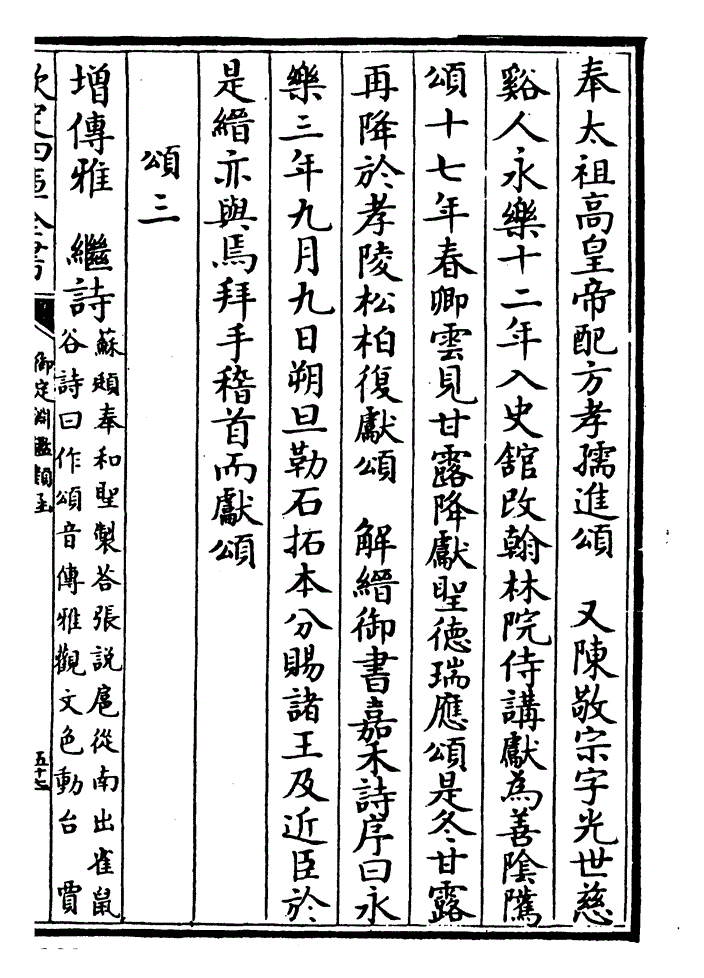 奉太祖高皇帝配方孝孺進頌　又陳敬宗字光世慈
谿人永樂十二年入史舘改翰林院侍講獻為善陰隲
頌十七年春卿雲見甘露降獻聖徳瑞應頌是冬甘露
再降於孝陵松柏復獻頌　解縉御書嘉禾詩序曰永
樂三年九月九日朔旦勒石拓本分賜諸王及近臣於
是縉亦與焉拜手稽首而獻頌
頌三
增傳雅　繼詩
蘇頲奉和聖製荅張説扈從南出雀鼠
谷詩曰作頌音傳雅觀文色動台　賈
欽定四庫全書
御定淵鑑類函
五十七